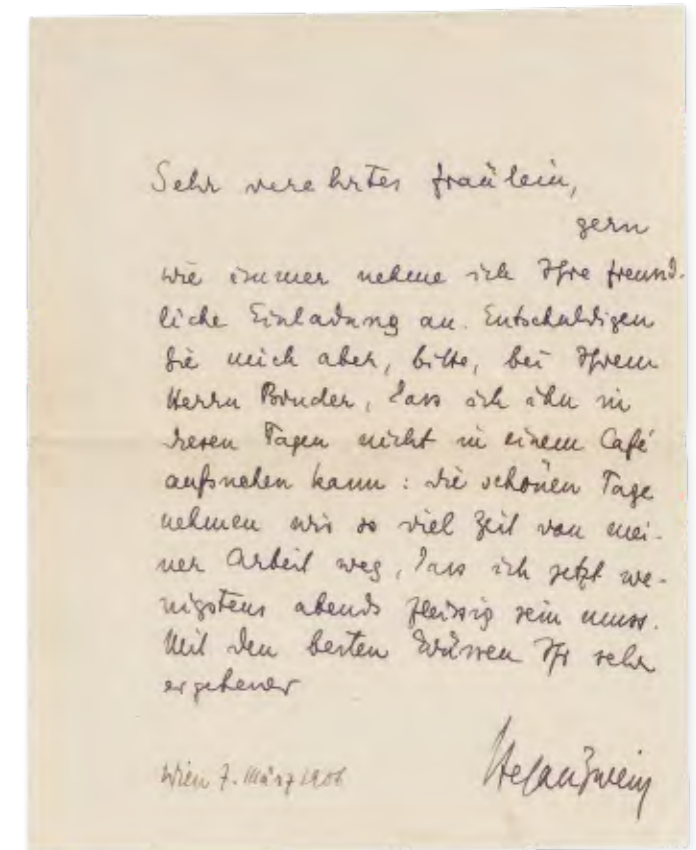 Sehr verehrtes Fräulein,
gern
wie immer nehme ich Ihre freund-
liche Einladung an. Entschuldigen
Sie mich aber, bitte, bei Ihrem
Herrn Bruder, dass ich ihn in
diesen Tagen nicht in einem Café
aufsuchen kann: die schönen Tage
nehmen mir so viel Zeit von mei-
ner Arbeit weg, dass ich jetzt we-
nigstens abends fleissig sein muss.
Mit den besten Grüssen Ihr sehr
ergebener
Stefan Zweig
Wien 7. März